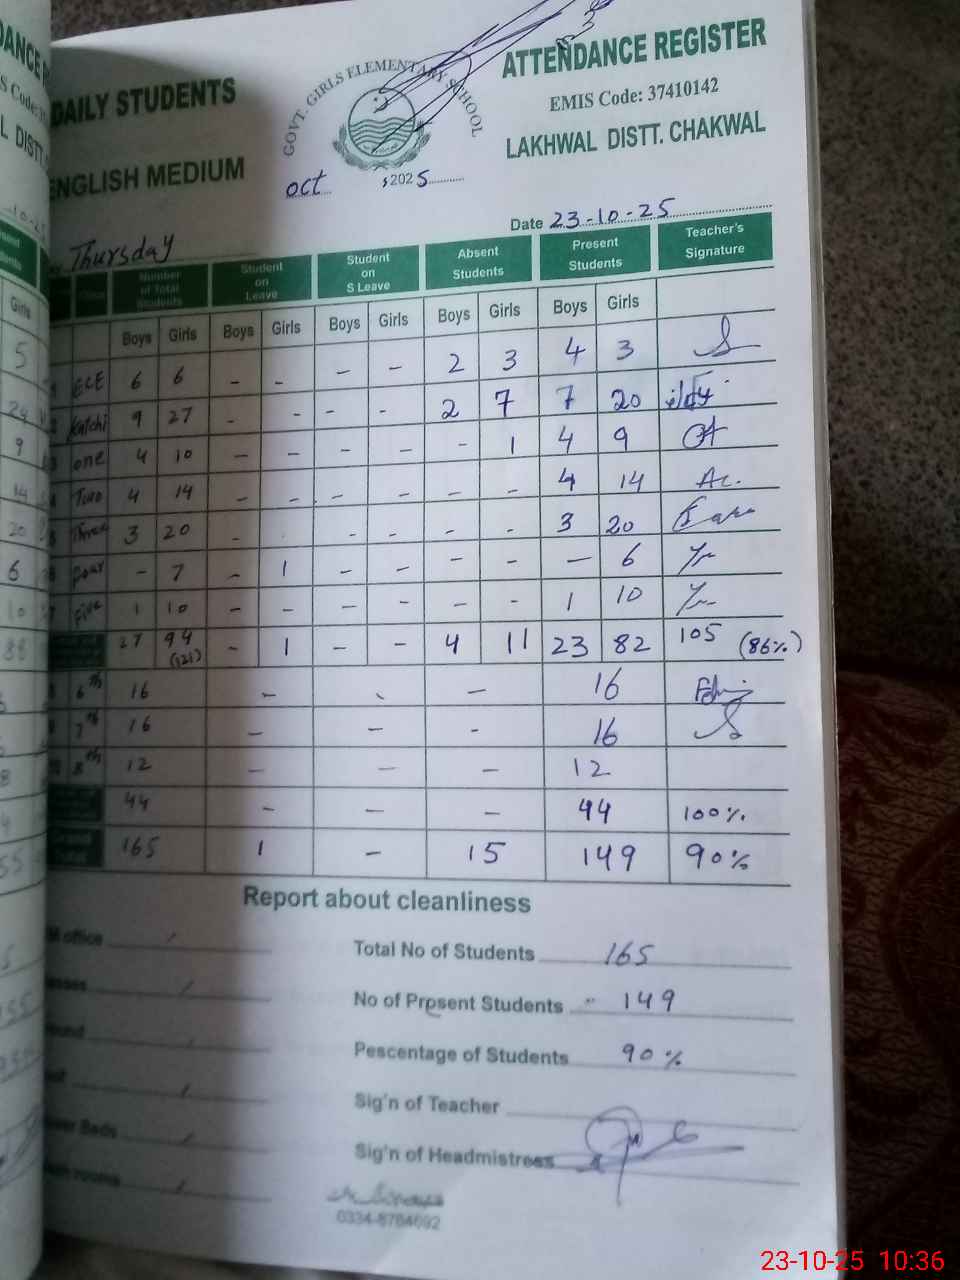 DAILY STUDENTS
ATTENDANCE REGISTER
GOVT. GIRLS ELEMENTARY SCHOOL
EMIS Code: 37410142
ENGLISH MEDIUM
LAKHWAL DISTT. CHAKWAL
oct 2025
Date 23-10-25
Thursday
Number of Total Students Student on Leave Student on S Leave Absent Students Present Students Teacher's Signature
Boys Girls Boys Girls Boys Girls Boys Girls Boys Girls
ECE 6 6 - - - - 2 3 4 3
Katchi 9 27 - - - - 2 7 7 20
one 4 10 - - - - - 1 4 9
Two 4 14 - - - - - - 4 14
Three 3 20 - - - - - 3 20
four - 7 - 1 - - - - - 6
five 1 10 - - - - - - 1 10
27 94 (121) - 1 - - 4 11 23 82 105 (86%)
6th 16 - - - 16
7th 16 - - - 16
8th 12 - - - 12
44 - - - 44 100%
165 1 - 15 149 90%
Report about cleanliness
office
Total No of Students 165
No of Present Students 149
Pescentage of Students 90%
Sig'n of Teacher
Beds
Sig'n of Headmistress
rooms
0334-8784692
Girls
5
24
9
14
20
6
10
88
23-10-25 10:36